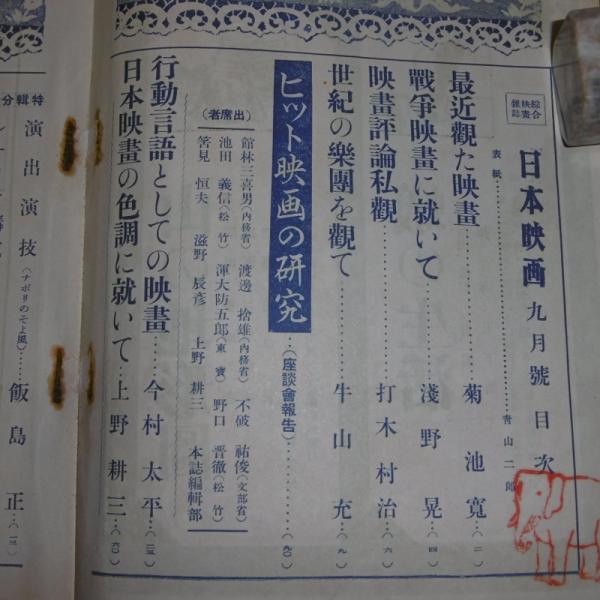 綜合映画雑誌
日本映画 九月號 目次
表紙……青山二郎
最近觀た映畫……菊池寬…(二)
戰爭映畫に就いて……淺野晃…(四)
映畫評論私觀……打木村治…(六)
世紀の樂團を觀て……牛山充…(九)
ヒット映画の研究……(座談會報告)……(九〇)
(出席者)
館林三喜男(内務省) 渡邊捨雄(内務省) 不破祐俊(文部省)
池田義信(松竹) 渾大防五郎(東寶) 野口晋徹(松竹)
筈見恒夫 滋野辰彦 上野耕三 本誌編輯部
行動言語としての映畫……今村太平…(二五)
日本映畫の色調に就いて…上野耕三…(六〇)
特輯分
演出演技(ナポリのそよ風)……飯島正…(一三)